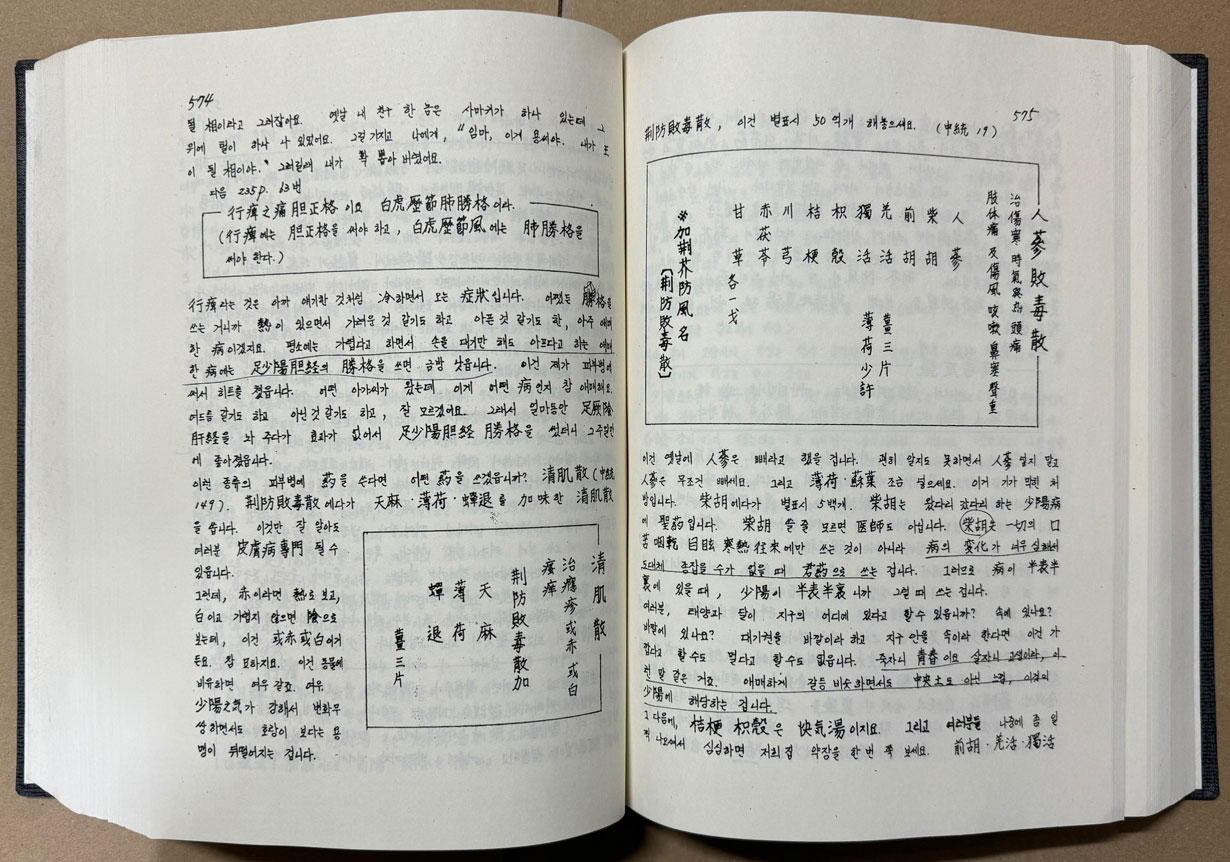 574
될 相이라고 그러잖아요. 옛날 내 친구 한 놈은 사마귀가 하나 있는데 그
위에 털이 하나 나 있었어요. 그걸 가지고 나에게, "임마, 이게 용씨야. 내가 도
이 될 相이야." 그러길래 내가 확 뽑아 버렸어요.
다음 235p. 63번
行痺之痛胆正格이요 白虎歷節肺勝格이라.
(行痺에는 胆正格을 써야 하고, 白虎歷節風에는 肺勝格을
써야 한다.)
行痺라는 것은 아까 얘기한 것처럼 冷하면서 오는 症狀입니다. 어쨌든 勝格을
쓰는 거니까 熱이 있으면서 가려운 것 같기도 하고, 아픈 것 같기도 한, 아주 애매
한 病이겠지요. 평소에는 가렵다고 하면서 손을 대기만 해도 아프다고 하는 애매
한 病에는 足少陽胆経의 勝格을 쓰면 금방 낫습니다. 이건 제가 피부병에
써서 히트를 쳤읍니다. 어떤 아가씨가 왔는데 이게 어떤 病인지 참 애매해요.
여드름 같기도 하고 아닌 것 같기도 하고, 잘 모르겠어요. 그래서 얼마동안 足厥陰
肝経을 놔 주다가 효과가 없어서 足少陽胆経 勝格을 썼더니 그 주일만
에 좋아졌읍니다.
이런 종류의 피부병에 药을 쓴다면 어떤 药을 쓰겠읍니까? 清肌散(中統
149). 荆防敗毒散에다가 天麻·薄荷·蟬退를 加味한 清肌散
을 씁니다. 이것만 잘 알아도
여러분 皮膚病專門 될 수
있읍니다.
그런데, 赤이라면 熱로 보고,
白이고 가렵지 않으면 陰으로
보는데, 이건 或赤或白이거
든요. 참 묘하지요. 이건 동물에
비유하면 여우 같죠. 여우
少陽之気가 강해서 변화무
쌍하면서도 호랑이 보다는 용
맹이 뒤떨어지는 겁니다.
清肌散
治癮疹或赤或白
瘙痒
荆防敗毒散加
天麻
薄荷
蟬退
薑三片
575
荆防敗毒散, 이건 별표시 50억개 해놓으세요. (中統 19)
人蔘敗毒散
治傷寒時氣發熱頭痛
肢体痛及傷風咳嗽鼻塞聲重
人蔘
柴胡
前胡
羌活
獨活
枳殼
桔梗
川芎
赤茯苓
甘草 各一戈
薑三片
薄荷少許
※加荆芥防風名
[荆防敗毒散]
이건 옛날에 人蔘은 빼라고 했을 겁니다. 괜히 알지도 못하면서 人蔘 넣지 말고
人蔘은 무조건 빼세요. 그리고 薄荷·蘇葉 조금 넣으세요. 이거 기가 막힌 처
방입니다. 柴胡에다가 별표시 5백개. 柴胡는 왔다리 갔다리 하는 少陽病
에 聖药입니다. 柴胡 쓸 줄 모르면 医師도 아닙니다. 柴胡는 一切의 口
苦咽乾 目眩 寒熱往來에만 쓰는 것이 아니라 病의 変化가 너무 심해서
도대체 종잡을 수가 없을 때 君药으로 쓰는 겁니다. 그러므로 病이 半表半
裏에 있을 때, 少陽이 半表半裏니까 그럴 때 쓰는 겁니다.
여러분, 태양과 달이 지구의 어디에 있다고 할 수 있읍니까? 속에 있나요?
바깥에 있나요? 대기권을 바깥이라 하고 지구 안을 속이라 한다면 이건 가
깝다고 할 수도 멀다고 할 수도 없읍니다. 죽자니 青春이요 살자니 고생이라, 이
런 말 같은 거죠. 애매하게 갈등 비슷하면서도 中央土도 아닌 느낌, 이것이
少陽에 해당하는 겁니다.
그 다음에, 桔梗 枳殼은 快気湯이지요. 그리고 여러분들 나중에 좀 일
찍 나오셔서 심심하면 저희 집 약장을 한 번 쭉 보세요. 前胡·羌活·獨活